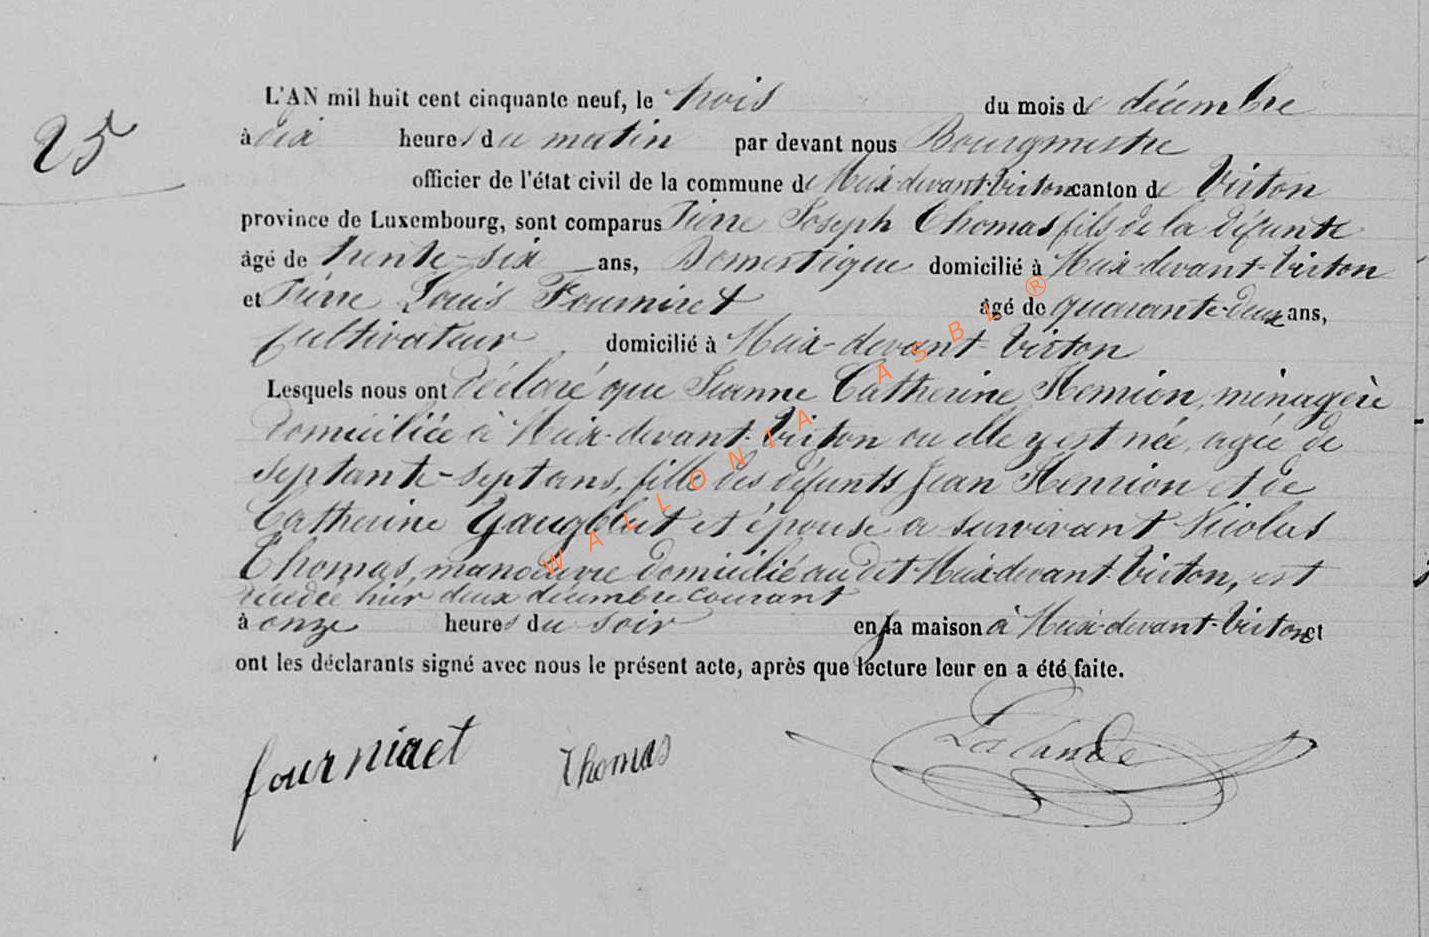 25
L'AN mil huit cent cinquante neuf, le trois du mois de décembre
à dix heures du matin par devant nous Bourgmestre
officier de l'état civil de la commune de Meix-devant-Virton canton de Virton
province de Luxembourg, sont comparus Pierre Joseph Thomas fils de la défunte
âgé de trente-six ans, Domestique domicilié à Meix-devant-Virton
et Pierre Louis Fourniret âgé de quarante-deux ans,
cultivateur domicilié à Meix-devant-Virton
Lesquels nous ont déclaré que Jeanne Catherine Henrion, ménagère
domiciliée à Meix-devant-Virton ou elle y est née, agée de
septante-sept ans, fille des défunts Jean Henrion et de
Catherine et épouse a survivant Nicolas
Thomas, manoeuvre domicilié au dit Meix-devant-Virton, est
décédée hier deux décembre courant
à onze heures du soir en sa maison à Meix-devant-Virton et
ont les déclarants signé avec nous le présent acte, après que lecture leur en a été faite.
fourniret Thomas Lalande
WALLONIA ASBL ®